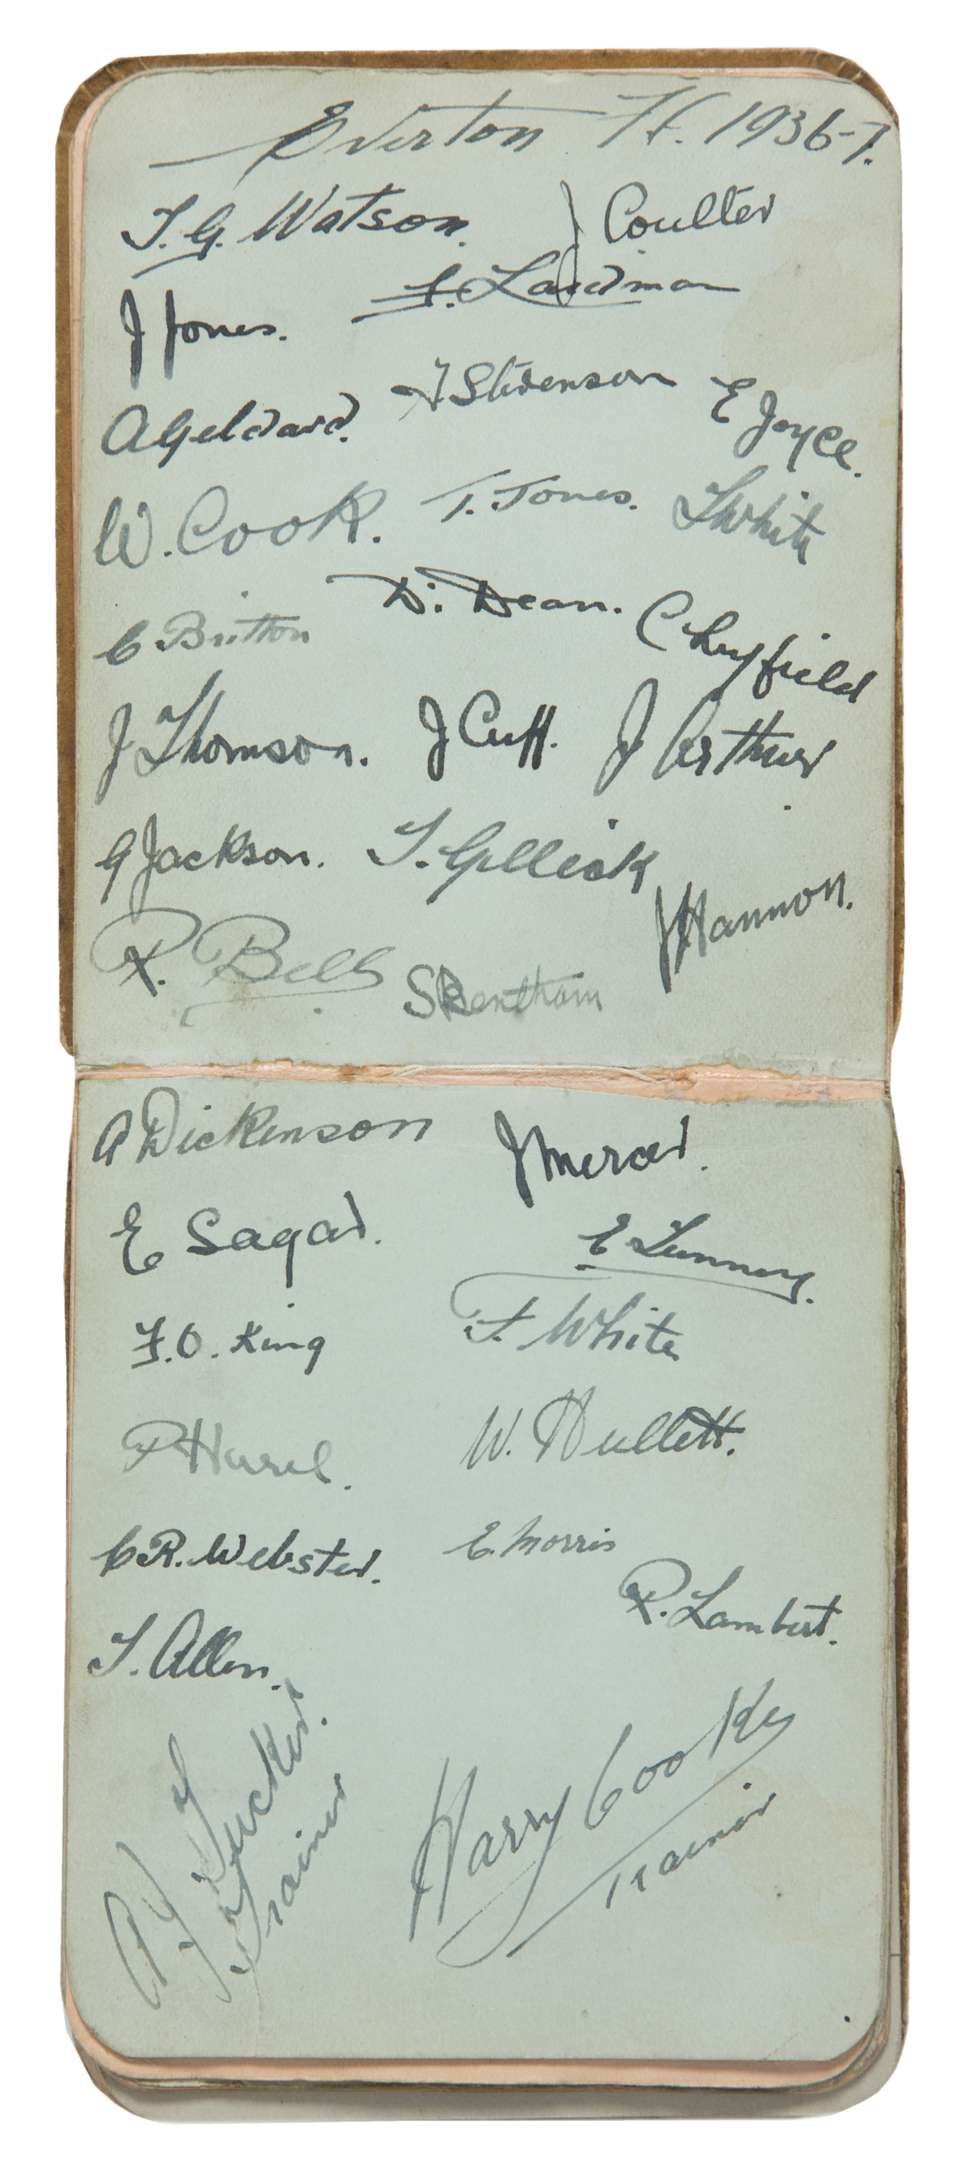 Everton F.C. 1936-7.
T. G. Watson. J Coulter
J Jones. F. Laidman
A Geldard. A Stevenson E Joyce.
W. Cook. T. Jones. T White
C Britton D. Dean. C Leyfield
J Thomson. J Cuff. J Arthur
G Jackson. T. Gillick
R. Bell S Bentham J Hannon.
A Dickenson J Mercer.
E Sagar. E Tunney.
F.O. King T. White
P Hurel. W. Hullett.
C R. Webster. E Morris
J. Allen. R. Lambert.
Tucker. Trainer
Harry Cooke Trainer